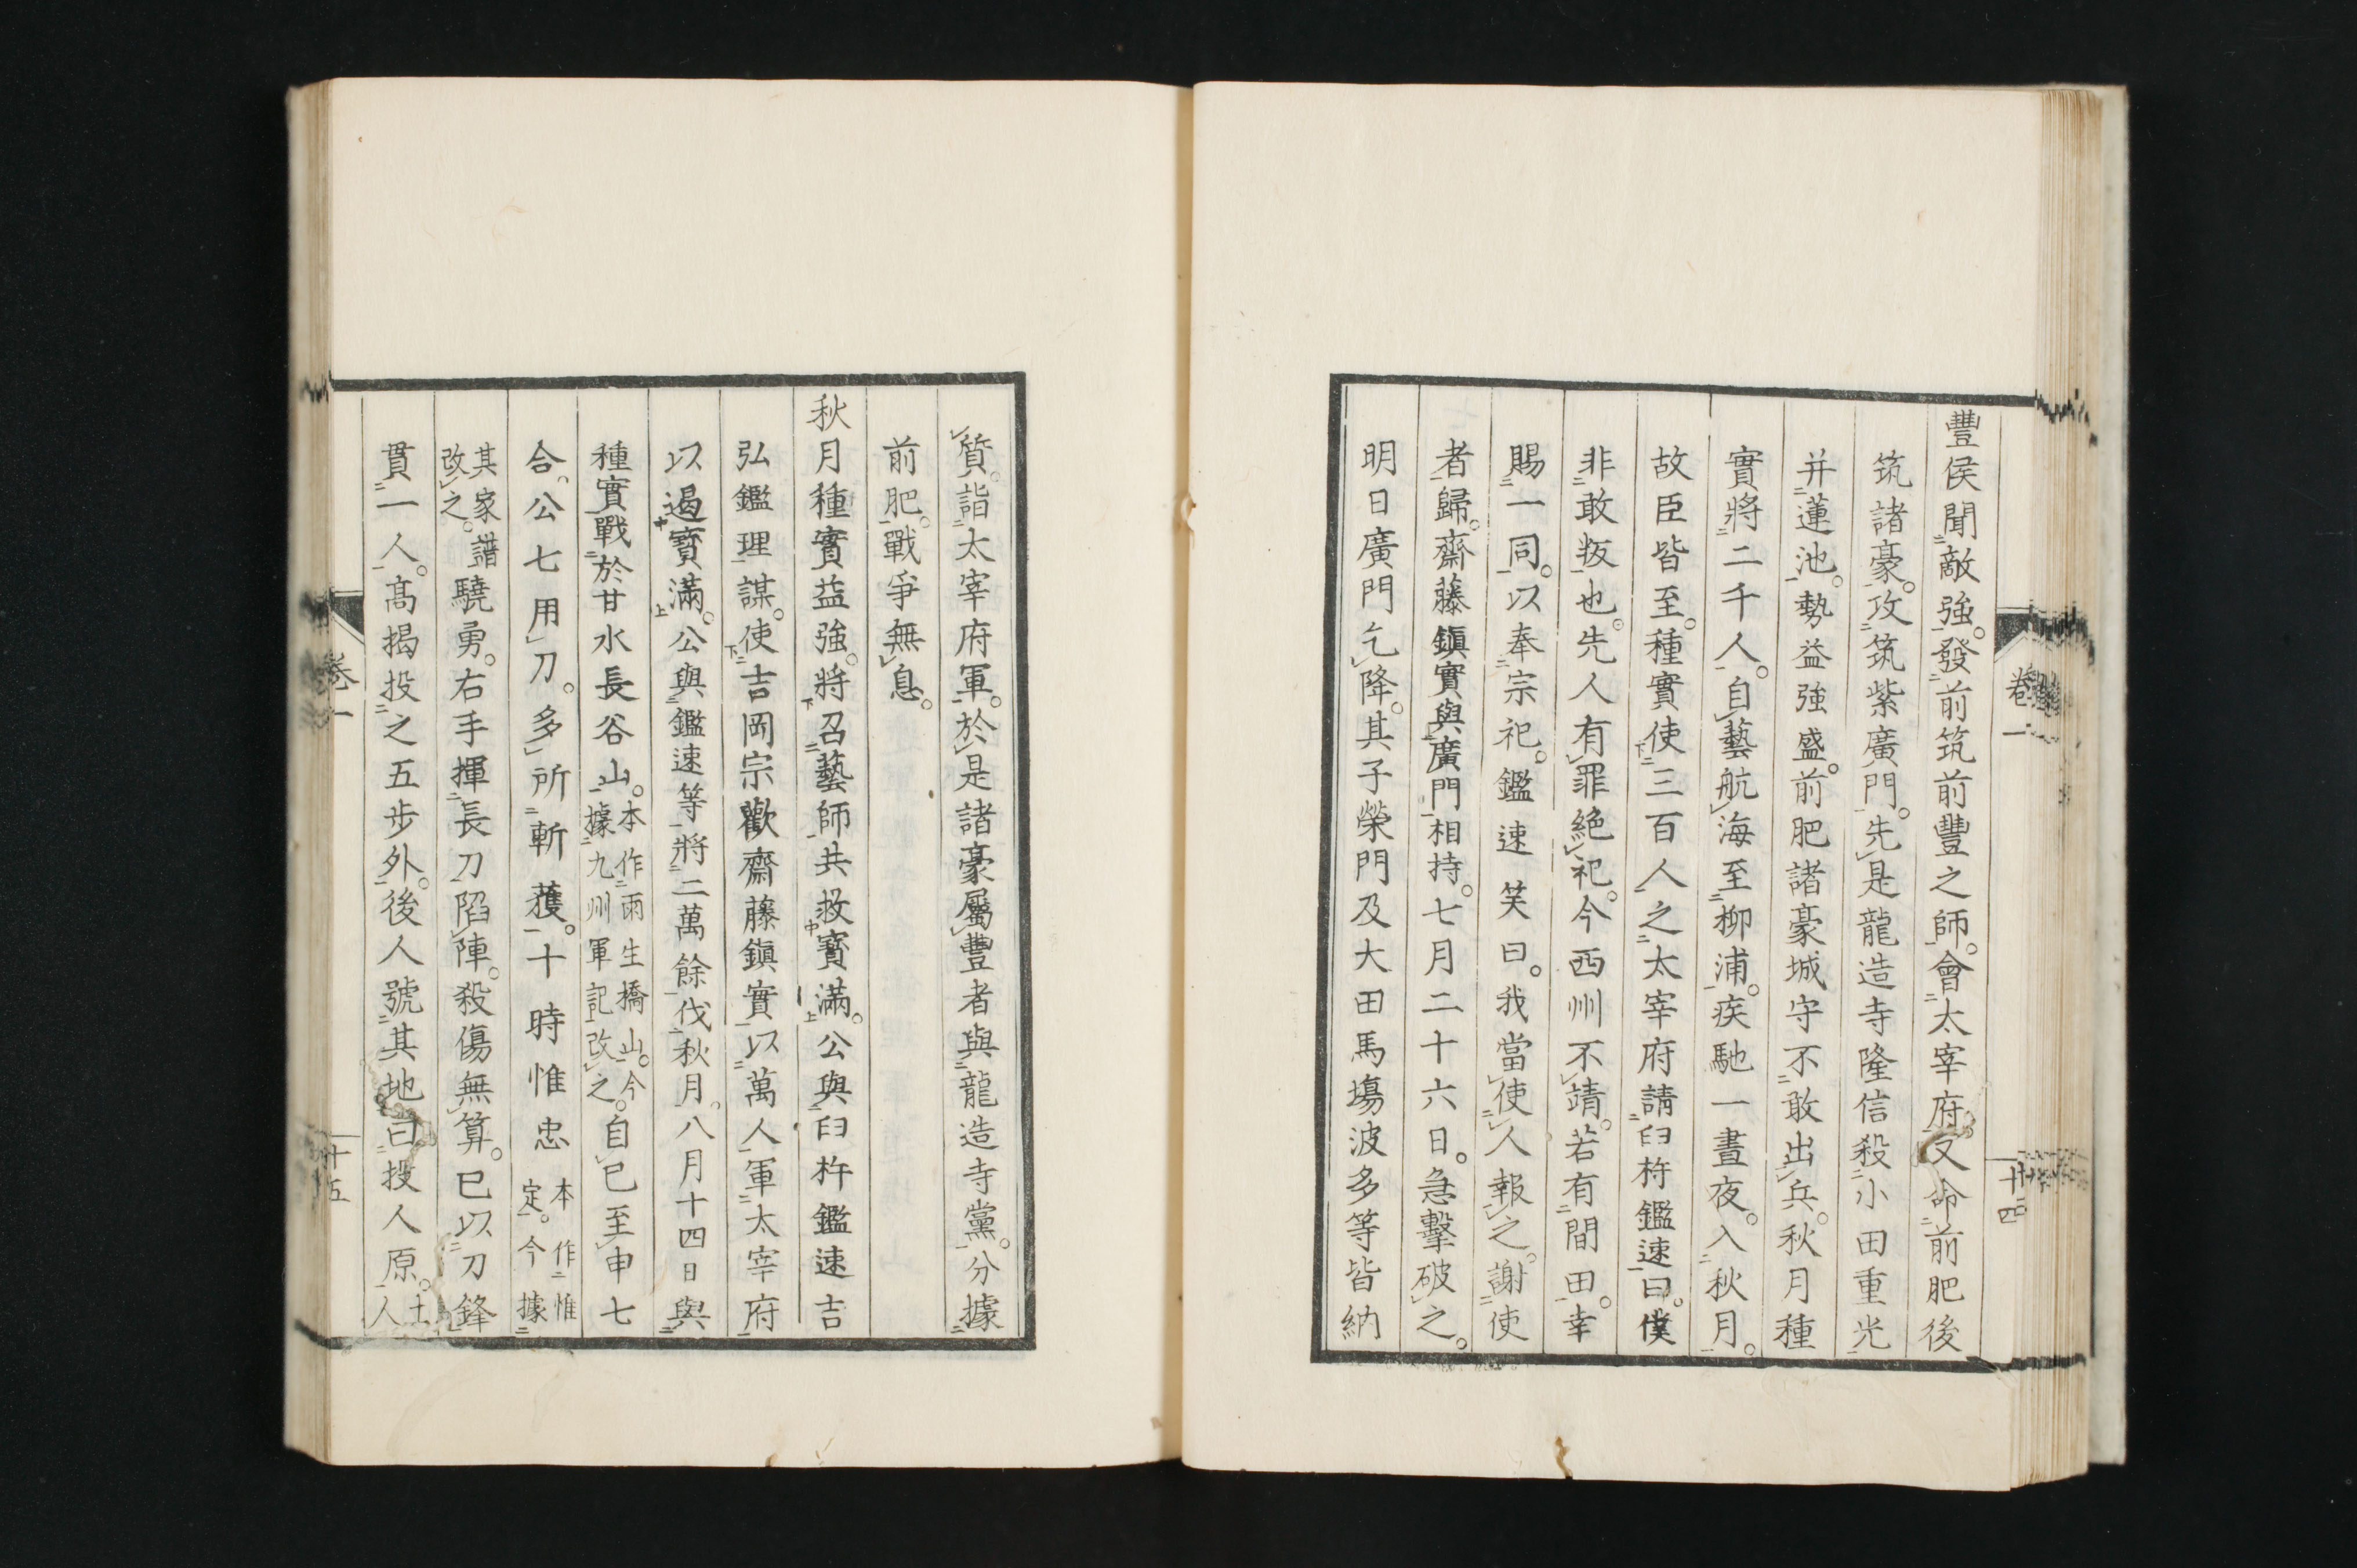 豐侯聞敵強。發前筑前豐之師。會太宰府。又命前肥後
筑諸豪。攻筑紫廣門。先是龍造寺隆信殺小田重光
并蓮池。勢益強盛。前肥諸豪城守不敢出兵。秋月種
實將二千人。自藝航海至柳浦。疾馳一晝夜。入秋月。
故臣皆至。種實使三百人之太宰府請臼杵鑑速曰。僕
非敢叛也。先人有罪絕祀。今西州不靖。若有間田。幸
賜一同。以奉宗祀。鑑速笑曰。我當使人報之。謝使
者歸。齋藤鎭實與廣門相持。七月二十六日。急擊破之。
明日廣門乞降。其子榮門及大田馬塲波多等皆納
卷一
十四
質。詣太宰府軍。於是諸豪屬豐者與龍造寺黨。分據
前肥。戰爭無息。
秋月種實益強。將召藝師共救寳滿。公與臼杵鑑速吉
弘鑑理謀。使吉岡宗歡齋藤鎭實以萬人軍太宰府
以遏寳滿。公與鑑速等將二萬餘伐秋月。八月十四日與
種實戰於甘水長谷山。本作雨生橋山。今據九州軍記改之。自巳至申七
合。公七用刀。多所斬獲。十時惟忠本作惟定。今據
其家譜改之。驍勇。右手揮長刀陷陣。殺傷無算。巳以刀鋒
貫一人。高揭投之五步外。後人號其地曰投人原。土人
卷一
十五